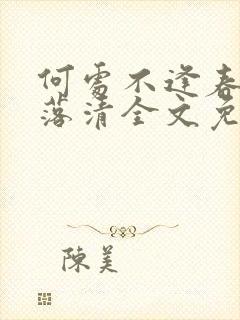 何處不逢春
落清全文免
陳美